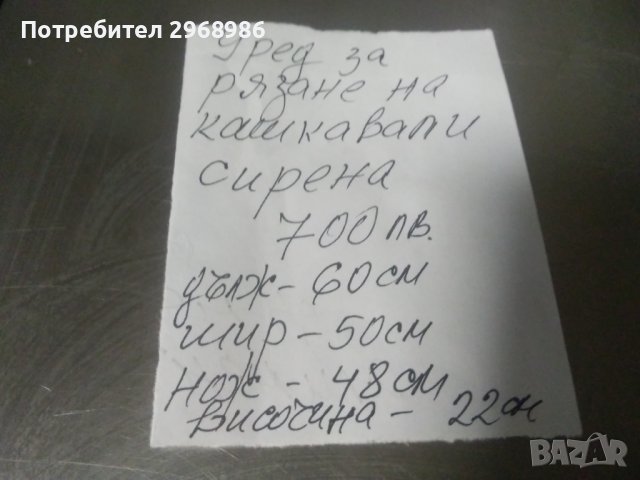 Потребител 2968986
Уред за
рязане на
кашкавал и
сирена
700 лв.
дълж - 60 см
шир - 50 см
нож - 48 см
височина - 22 см
BAZAR